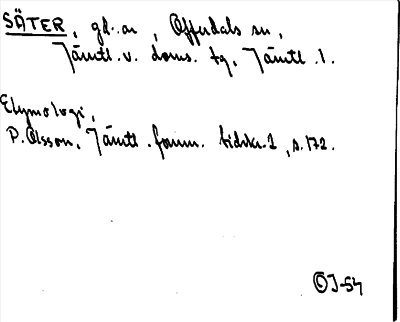 SÄTER, gd. ar, Offerdals sn,
Jämtl. v. doms. tg, Jämtl. l.
Etymologi,
P. Olsson, Jämtl. forn. tidskr. 1, s. 172.
©J-54